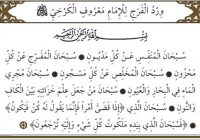 وِرْدُ الْفَرَجِ لِلْإِمَامِ مَعْرُوفٍ الْكَرْخِيِّ
بِسْمِ اللَّهِ الرَّحْمَنِ الرَّحِيمِ
سُبْحَانَ الْمُنَفِّسِ عَنْ كُلِّ مَدْيُونٍ ۝ سُبْحَانَ الْمُفَرِّجِ عَنْ كُلِّ
مَحْزُونٍ ۝ سُبْحَانَ الْمُخَلِّصِ عَنْ كُلِّ مَسْجُونٍ ۝ سُبْحَانَ مُجْرِي
الْمَاءِ فِي الْبَحْرِ وَالْعُيُونِ ۝ سُبْحَانَ مَنْ جَعَلَ خَزَائِنَهُ بَيْنَ الْكَافِ
وَالنُّونِ ۝ سُبْحَانَ الَّذِي ﴿إِذَا قَضَىٰ أَمْرًا فَإِنَّمَا يَقُولُ لَهُ كُنْ فَيَكُونُ﴾
۝ ﴿فَسُبْحَانَ الَّذِي بِيَدِهِ مَلَكُوتُ كُلِّ شَيْءٍ وَإِلَيْهِ تُرْجَعُونَ﴾